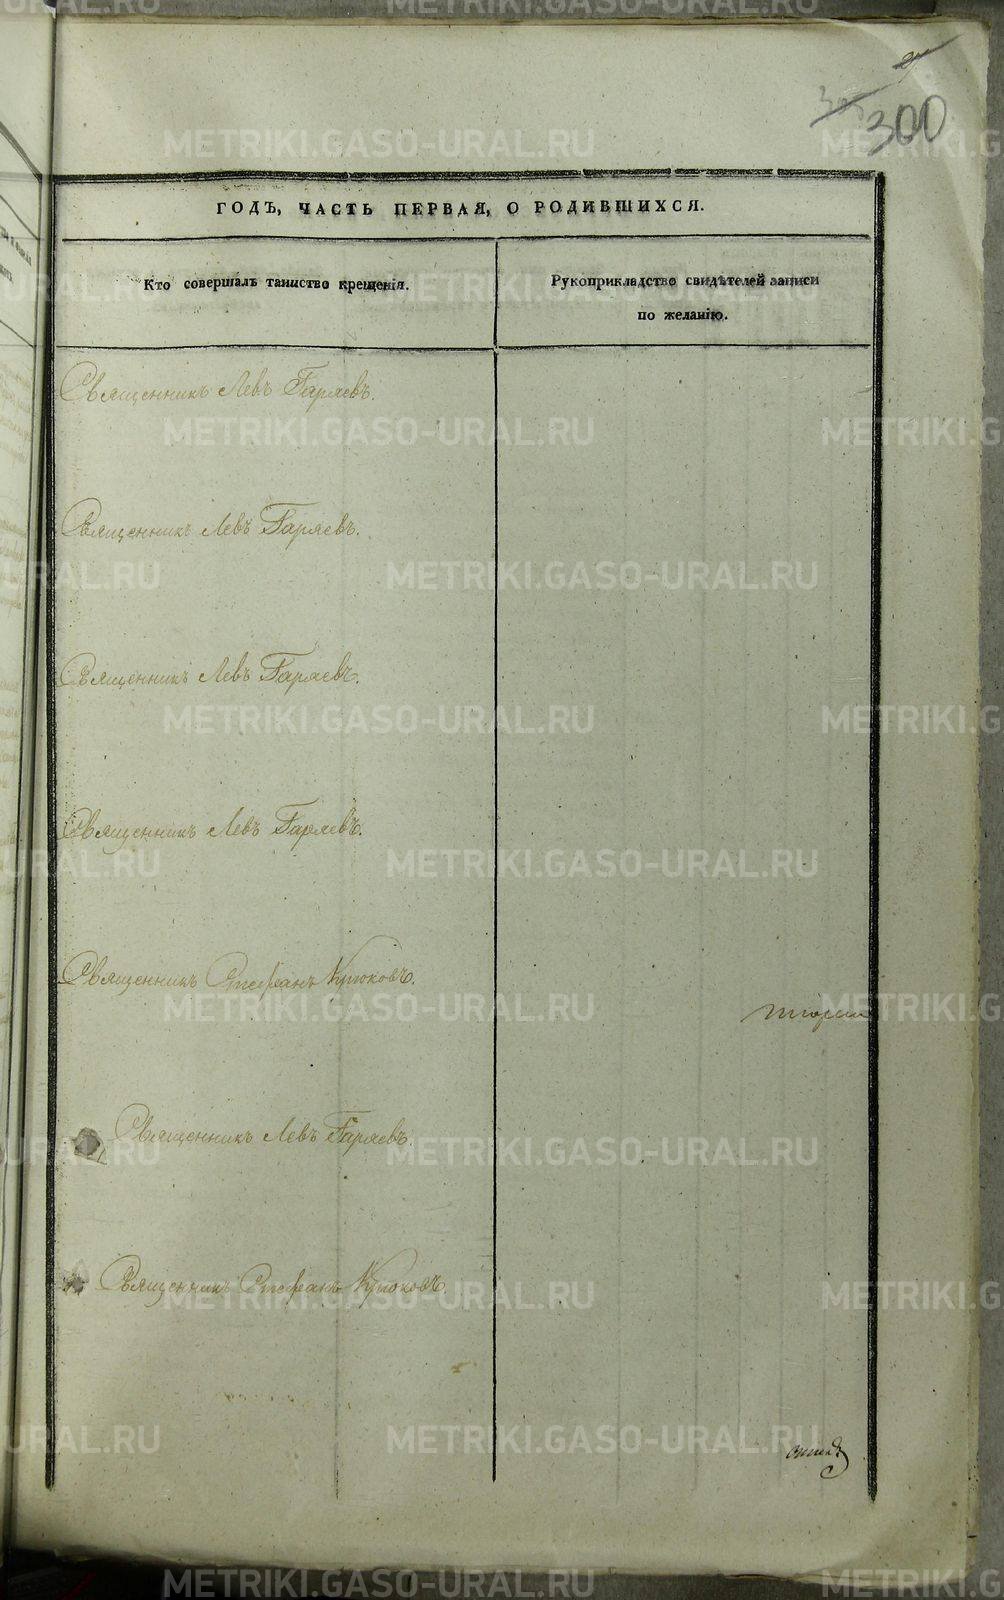 300
ГОДЪ, ЧАСТЬ ПЕРВАЯ, О РОДИВШИХСЯ.
Кто совершалъ таинство крещенія.
Рукоприкладство свидѣтелей записи
по желанію.
Священникъ Левъ Гаряевъ.
Священникъ Левъ Гаряевъ.
Священникъ Левъ Гаряевъ.
Священникъ Левъ Гаряевъ.
Священникъ Стефанъ Крюковъ.
Священникъ Левъ Гаряевъ.
Священникъ Стефанъ Крюковъ.
METRIKI.GASO-URAL.RU